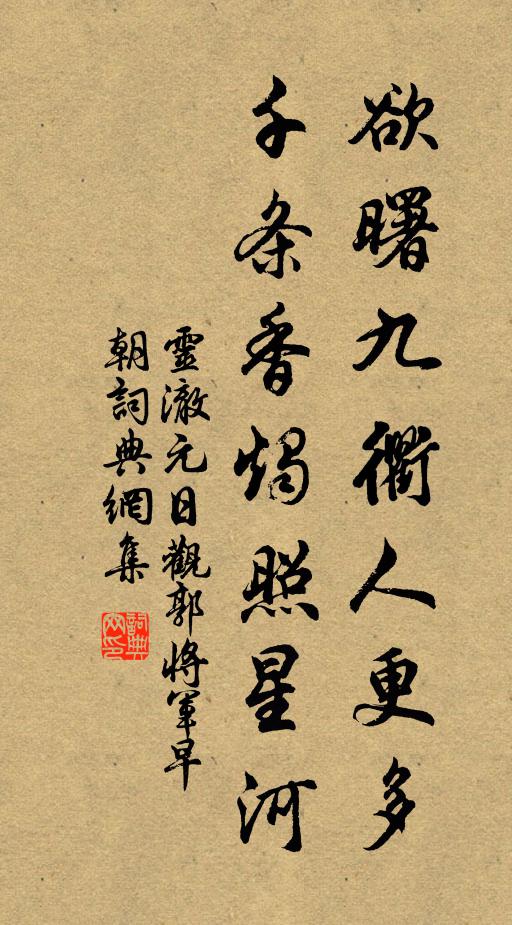 欲曙九衢人更多
千条香烛照星河
靈澈元日觀郭將軍早
朝詞典網集
詞典
网印